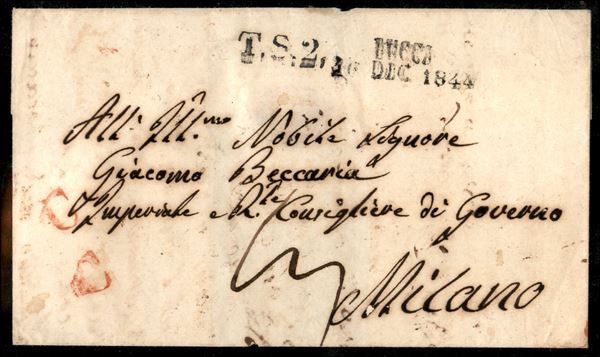 T.S.2.
LUCCA
16 DIC. 1844
All' Ill.mo Nobile Signore
Giacomo Beccaria
Imperiale e R.le Consigliere di Governo
Milano